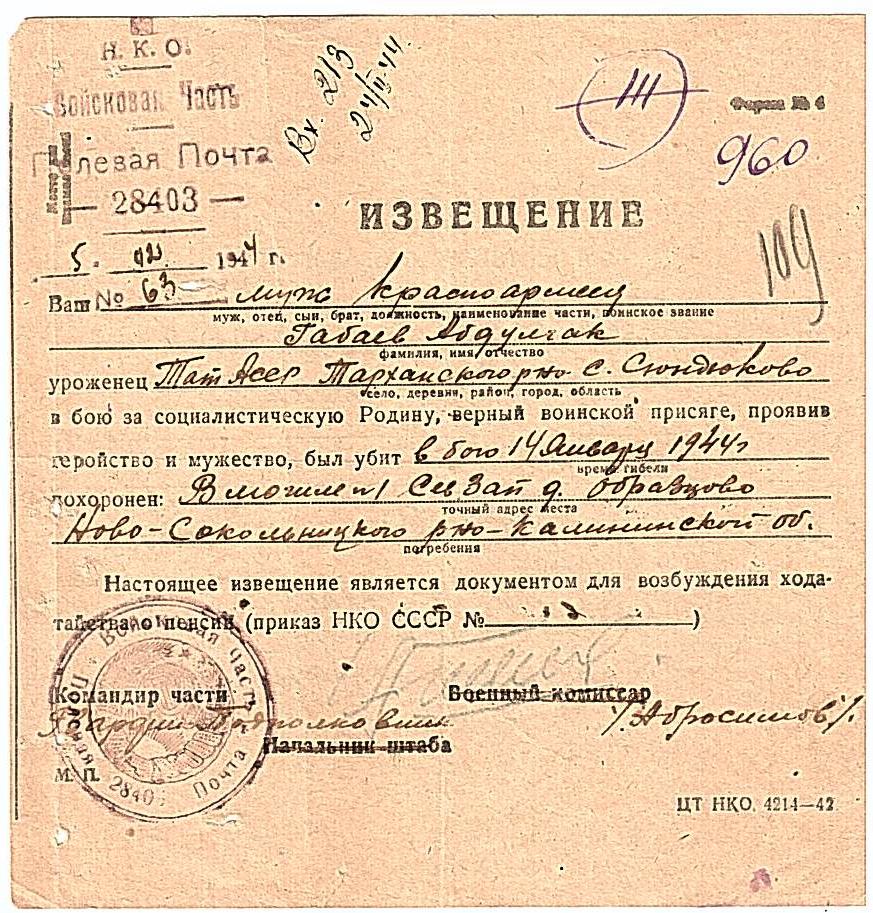 Н. К. О.
Войсковая Часть
Полевая Почта
— 28403 —
Вх. 213
24/II 44
III
Форма № 4
960
109
ИЗВЕЩЕНИЕ
5. 02 1944 г.
№ 63
Ваш муж красноармеец
муж, отец, сын, брат, должность, наименование части, воинское звание
Габаев Абдулхак
фамилия, имя, отчество
уроженец Тат Асср Тарханского р-но с. Сюндюково
село, деревня, район, город, область
в бою за социалистическую Родину, верный воинской присяге, проявив
геройство и мужество, был убит в бою 14 Января 1944 г
время гибели
похоронен: В могиле №1 Сев Зап д. Образцово
точный адрес места
Ново-Сокольницкого р-но-Калининской об.
погребения
Настоящее извещение является документом для возбуждения хода-
тайства о пенсии (приказ НКО СССР № )
Командир части
Военный комиссар
Гвардии Подполковник
/Абросимов/.
Начальник штаба
М. П.
Войсковая Часть Полевая Почта 28403
ЦТ НКО. 4214—42